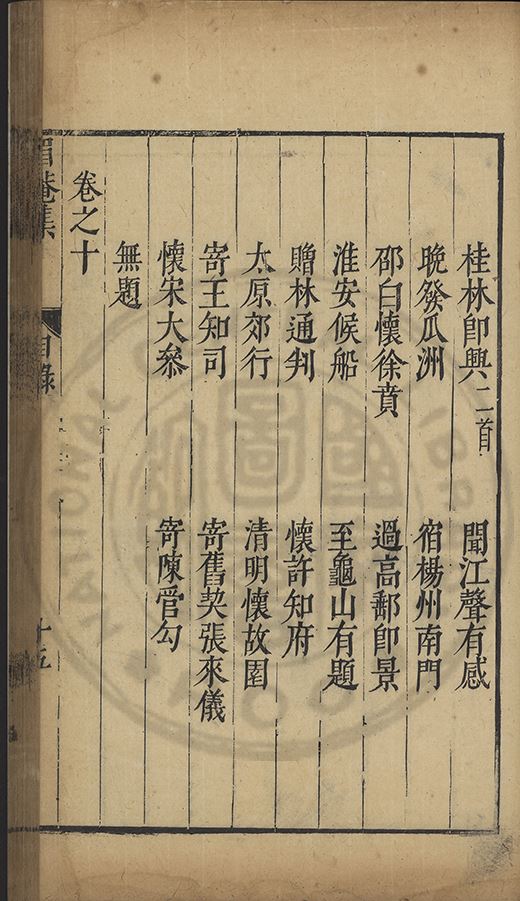 桂林即興二首　聞江聲有感
晚發瓜洲　宿楊州南門
邵白懷徐賁　過高郵即景
淮安候船　至龜山有題
贈林通判　懷許知府
太原郊行　清明懷故園
寄王知司　寄舊契張來儀
懷宋大叅　寄陳管勾
無題
卷之十
眉菴集　目錄　十五